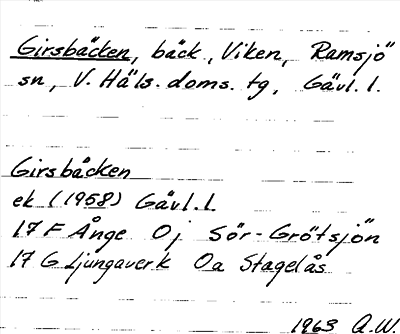 Girsbäcken, bäck, Viken, Ramsjö
sn, V. Häls. doms. tg, Gävl. l.
Girsbäcken
ek (1958) Gävl. l.
17 F Ånge Oj Sör-Grötsjön
17 G Ljungaverk Oa Stagelås
1963 Q.W.